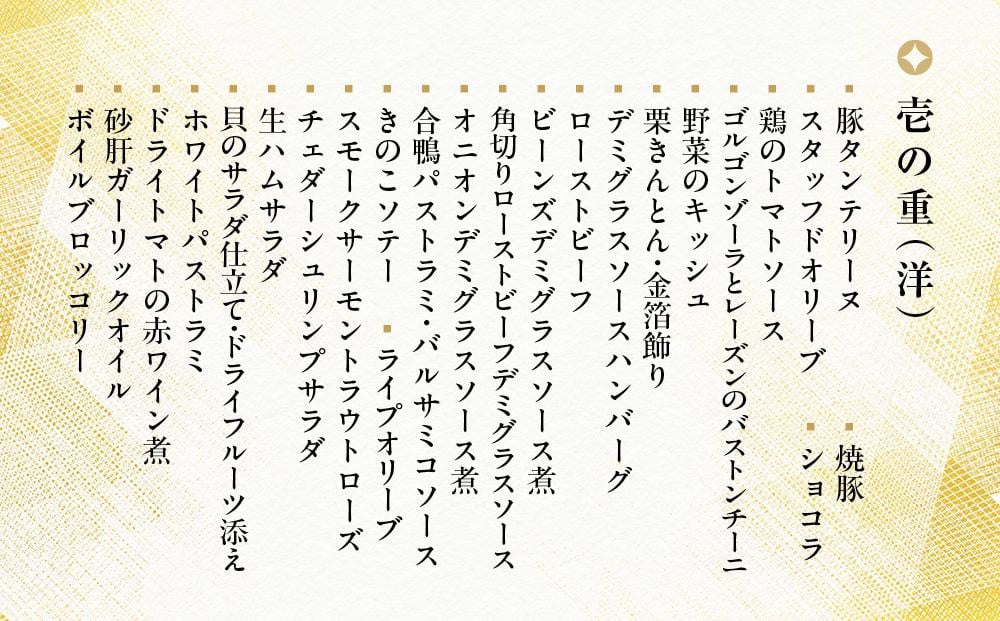 壱の重(洋)
豚タンテリーヌ
焼豚
スタッフドオリーブ
ショコラ
鶏のトマトソース
ゴルゴンゾーラとレーズンのバストンチーニ
野菜のキッシュ
栗きんとん・金箔飾り
デミグラスソースハンバーグ
ローストビーフ
ビーンズデミグラスソース煮
角切りローストビーフデミグラスソース
オニオンデミグラスソース煮
合鴨パストラミ・バルサミコソース
きのこソテー
ライプオリーブ
スモークサーモントラウトローズ
チェダーシュリンプサラダ
生ハムサラダ
貝のサラダ仕立て・ドライフルーツ添え
ホワイトパストラミ
ドライトマトの赤ワイン煮
砂肝ガーリックオイル
ボイルブロッコリー